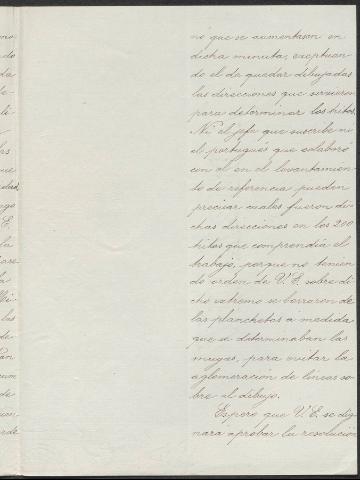 no que se aumentasen en
dicha minuta, exceptuan-
do el de quedar dibujadas
las direcciones que sirvieron
para determinar los hitos.
Ni el jefe que suscribe ni
el portugués que colaboró
con él en el levantamien-
to de referencia, pueden
precisar cuales fueron di-
chas direcciones en los 200
hitos que comprendía el
trabajo, porque no tenien-
do orden de V. E. sobre di-
cho extremo se borraron de
las planchetas a medida
que se determinaban las
mugas, para evitar la
aglomeración de líneas so-
bre el dibujo.
Espero que V. E. se dig-
nará aprobar la resolución